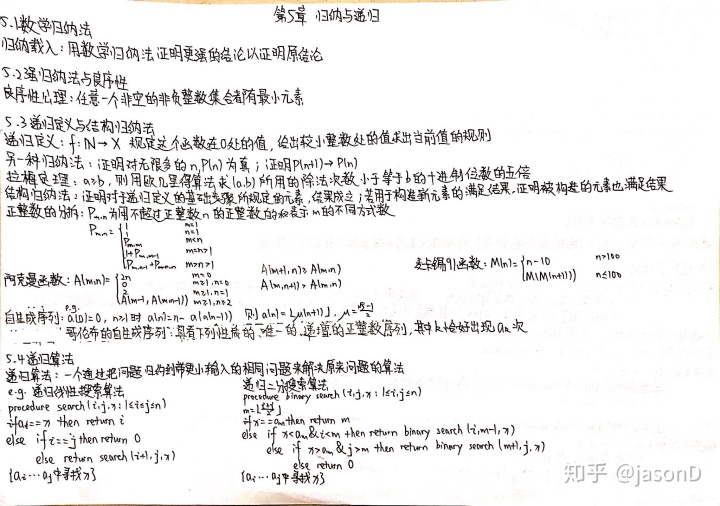 第5章 归纳与递归
5.1数学归纳法
归纳载入：用数学归纳法证明更强的结论以证明原结论
5.2强归纳法与良序性
良序性公理：任意一个非空的非负整数集合都有最小元素
5.3递归定义与结构归纳法
递归定义：f: N → X 规定这个函数在0处的值，给出较小整数处的值求出当前值的规则
另一种归纳法：证明对无限多的n, P(n)为真；证明P(n+1)→P(n)
拉梅定理：a≥b，则用欧几里得算法求(a,b)所用的除法次数小于等于b的十进制位数的五倍
结构归纳法：证明对于递归定义的基础步骤所规定的元素，结果成立；若用于构造新元素的满足结果，证明被构造的元素也满足结果
正整数的分拆：Pm,n为用不超过正整数n的正整数的和表示m的不同方式数
Pm,n= { 1 m=1
1 n=1
Pm,m m<n
1+Pm,m-1 m=n>1
Pm,n-1+Pm-n,n m>n>1
阿克曼函数：A(m,n)= { 2n m=0
0 m≥1,n=0
2 m≥1,n=1
A(m-1, A(m,n-1)) m≥1,n≥2
A(m+1,n) ≥ A(m,n)
A(m,n+1) > A(m,n)
麦卡锡91函数：M(n)= { n-10 n>100
M(M(n+11)) n≤100
自生成序列：e.g. a(0)=0, n≥1时 a(n)=n-a(a(n-1)) 则a(n)=⌊μ(n+1)⌋, μ=(√5-1)/2
哥伦布的自生成序列：具有下列性质的、唯一的、递增的正整数序列，其中k恰好出现ak次
5.4递归算法
递归算法：一个通过把问题归约到带更小输入的相同问题来解决原来问题的算法
e.g. 递归线性搜索算法
procedure search(i,j,x: 1≤i≤j≤n)
if ai==x then return i
else if i==j then return 0
else return search(i+1,j,x)
{ai…aj中寻找x}
递归二分搜索算法
procedure binary search(i,j,x: 1≤i≤j≤n)
m=⌊(i+j)/2⌋
if x==am then return m
else if x<am & i<m then return binary search(i,m-1,x)
else if x>am & j>m then return binary search(m+1,j,x)
else return 0
{ai…aj中寻找x}
知乎 @jasonD